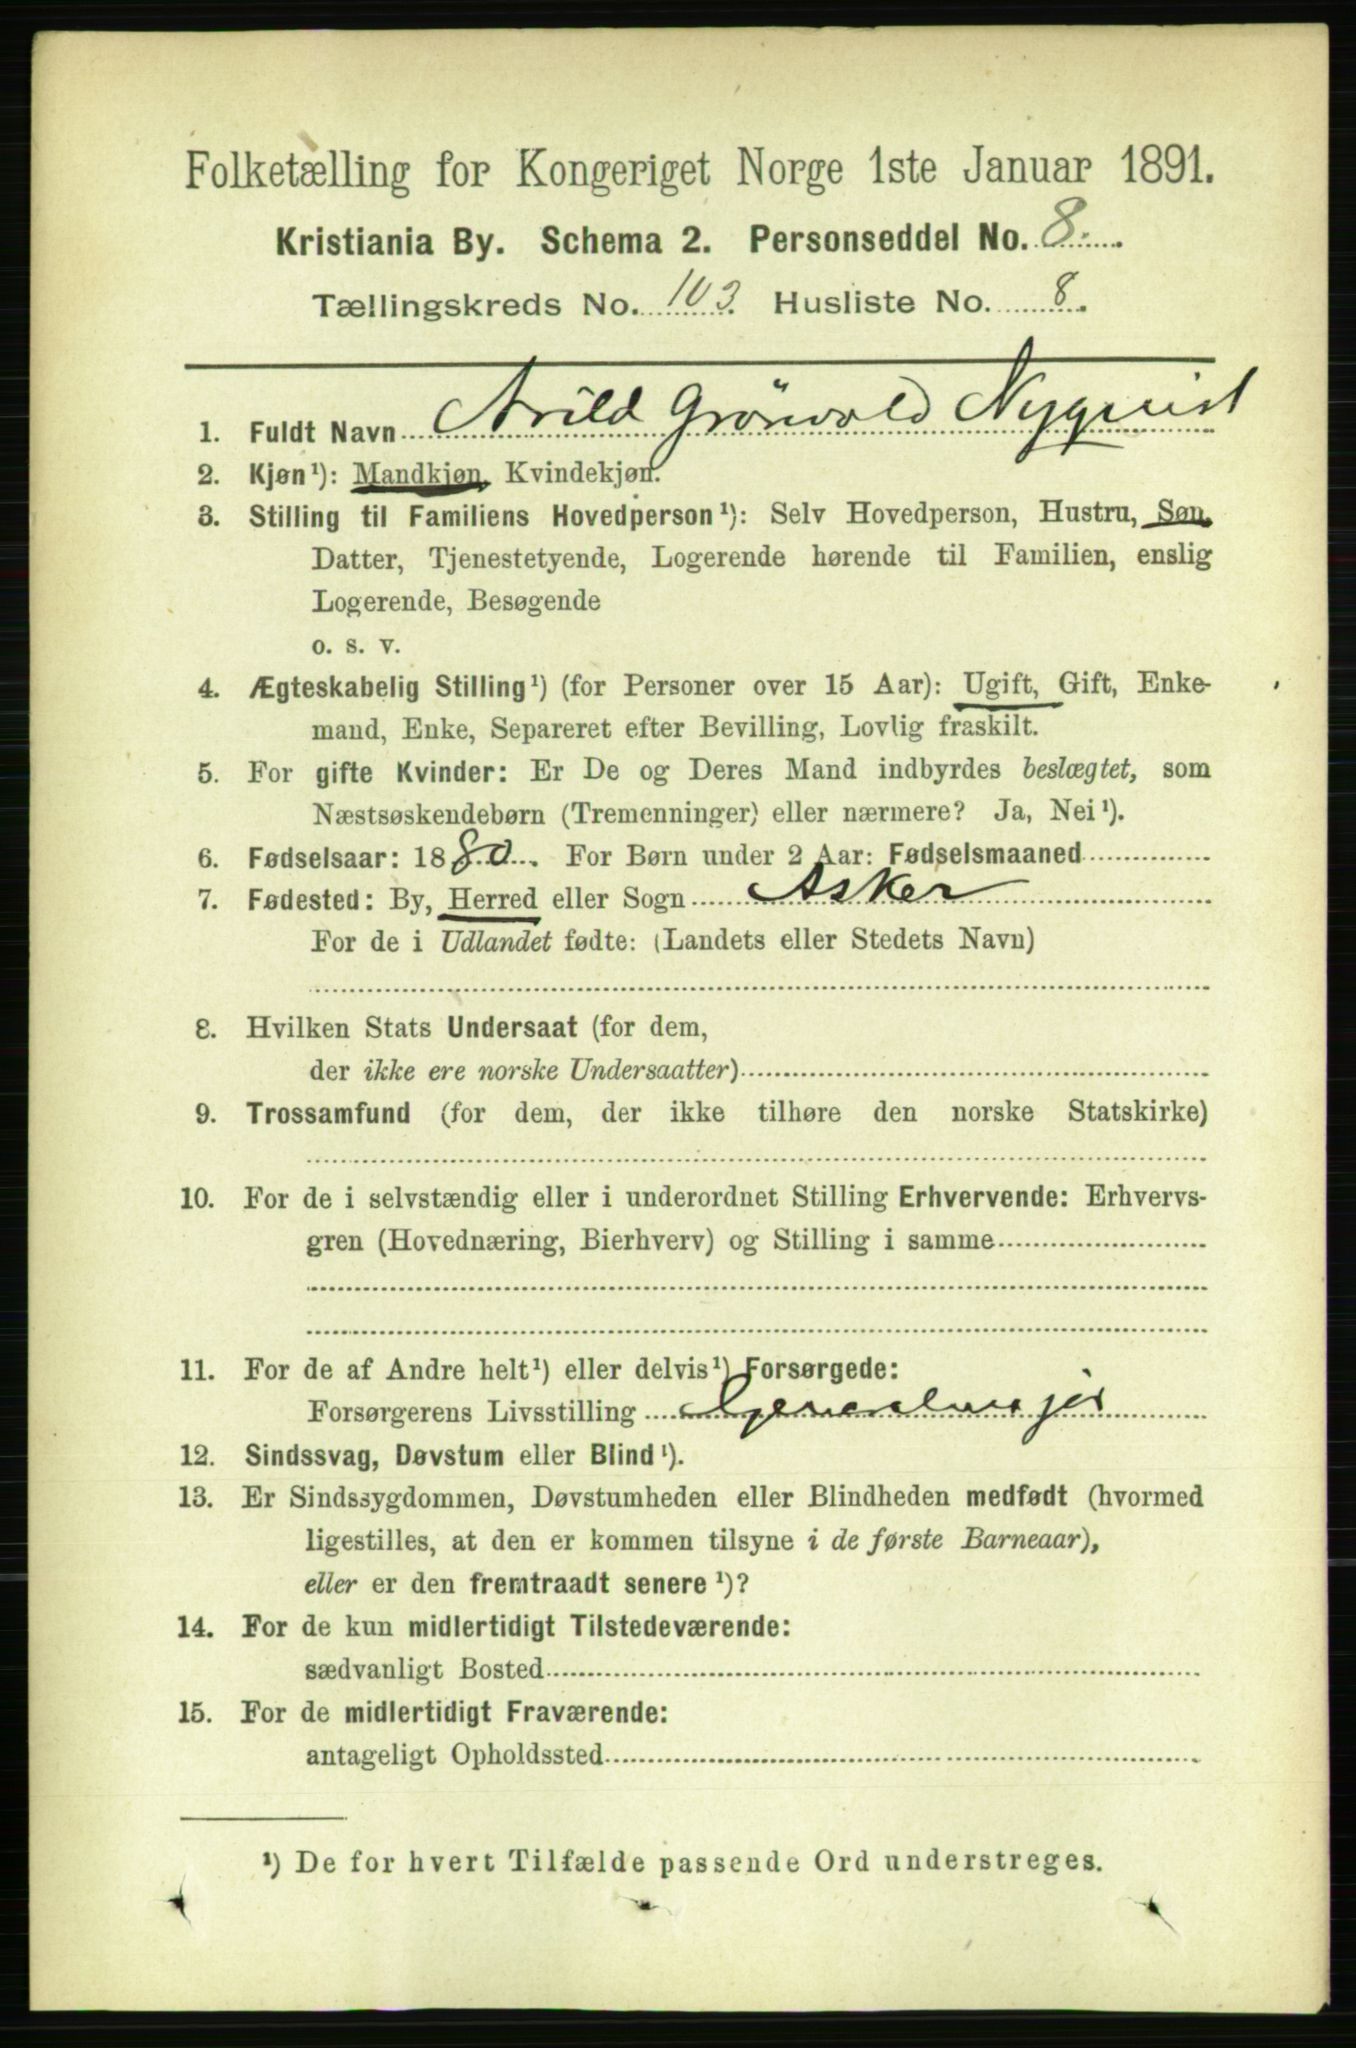 Folketælling for Kongeriget Norge 1ste Januar 1891.
Kristiania By. Schema 2. Personseddel No. 8.
Tællingskreds No. 103. Husliste No. 8.
1. Fuldt Navn Arild Grönvold Nyquist
2. Kjøn¹): Mandkjøn, Kvindekjøn.
3. Stilling til Familiens Hovedperson¹): Selv Hovedperson, Hustru, Søn,
Datter, Tjenestetyende, Logerende hørende til Familien, enslig
Logerende, Besøgende
o. s. v.
4. Ægteskabelig Stilling¹) (for Personer over 15 Aar): Ugift, Gift, Enke-
mand, Enke, Separeret efter Bevilling, Lovlig fraskilt.
5. For gifte Kvinder: Er De og Deres Mand indbyrdes beslægtet, som
Næstsøskendebørn (Tremenninger) eller nærmere? Ja, Nei¹).
6. Fødselsaar: 1880. For Børn under 2 Aar: Fødselsmaaned
7. Fødested: By, Herred eller Sogn Asker
For de i Udlandet fødte: (Landets eller Stedets Navn)
8. Hvilken Stats Undersaat (for dem,
der ikke ere norske Undersaatter)
9. Trossamfund (for dem, der ikke tilhøre den norske Statskirke)
10. For de i selvstændig eller i underordnet Stilling Erhvervende: Erhvervs-
gren (Hovednæring, Bierhverv) og Stilling i samme
11. For de af Andre helt¹) eller delvis¹) Forsørgede:
Forsørgerens Livsstilling Generalmajor
12. Sindssvag, Døvstum eller Blind¹).
13. Er Sindssygdommen, Døvstumheden eller Blindheden medfødt (hvormed
ligestilles, at den er kommen tilsyne i de første Barneaar),
eller er den fremtraadt senere¹)?
14. For de kun midlertidigt Tilstedeværende:
sædvanligt Bosted
15. For de midlertidigt Fraværende:
antageligt Opholdssted
¹) De for hvert Tilfælde passende Ord understreges.